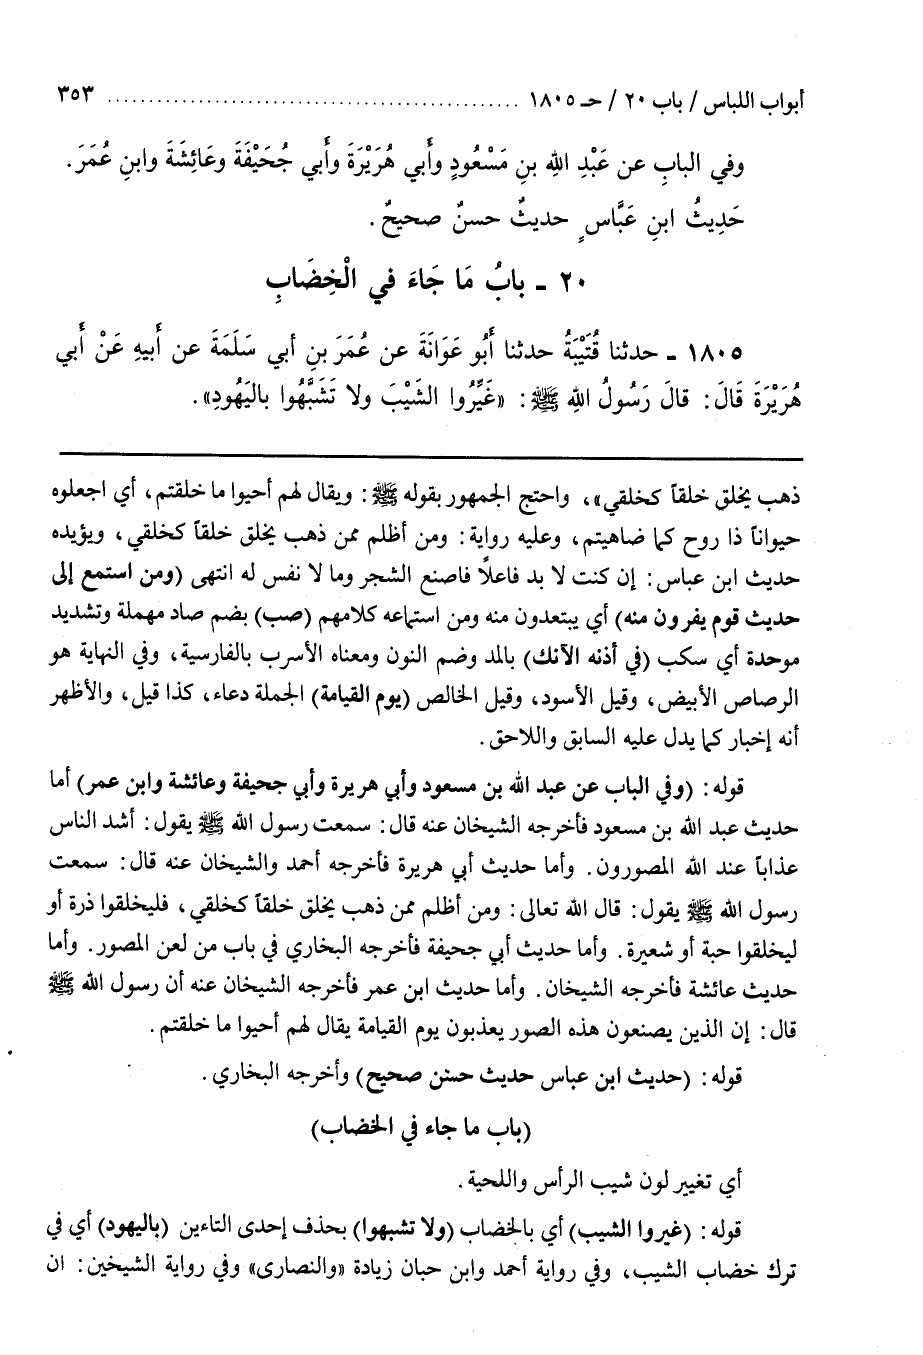 أبواب اللباس / باب ٢٠ / حـ ١٨٠٥ ................................................ ٣٥٣
وفي البابِ عن عَبْدِ اللهِ بنِ مَسْعُودٍ وأَبي هُرَيْرَةَ وأَبي جُحَيْفَةَ وعَائِشَةَ وابنِ عُمَرَ.
حَدِيثُ ابنِ عَبَّاسٍ حديثٌ حسنٌ صحيحٌ.
٢٠ - بابُ مَا جَاءَ في الْخِضَابِ
١٨٠٥ - حدثنا قُتَيْبَةُ حدثنا أَبُو عَوَانَةَ عن عُمَرَ بنِ أبي سَلَمَةَ عن أَبيهِ عَنْ أَبي
هُرَيْرَةَ قَالَ: قالَ رَسُولُ اللهِ ﷺ: «غَيِّرُوا الشَّيْبَ ولا تَشَبَّهُوا باليَهُودِ».
ذهب يخلق خلقاً كخلقي»، واحتج الجمهور بقوله ﷺ: ويقال لهم أحيوا ما خلقتم، أي اجعلوه
حيواناً ذا روح كما ضاهيتم، وعليه رواية: ومن أظلم ممن ذهب يخلق خلقاً كخلقي، ويؤيده
حديث ابن عباس: إن كنت لا بد فاعلاً فاصنع الشجر وما لا نفس له انتهى (ومن استمع إلى
حديث قوم يفرون منه) أي يبتعدون منه ومن استماعه كلامهم (صب) بضم صاد مهملة وتشديد
موحدة أي سكب (في أذنه الآنك) بالمد وضم النون ومعناه الأسرب بالفارسية، وفي النهاية هو
الرصاص الأبيض، وقيل الأسود، وقيل الخالص (يوم القيامة) الجملة دعاء، كذا قيل، والأظهر
أنه إخبار كما يدل عليه السابق واللاحق.
قوله: (وفي الباب عن عبد الله بن مسعود وأبي هريرة وأبي جحيفة وعائشة وابن عمر) أما
حديث عبد الله بن مسعود فأخرجه الشيخان عنه قال: سمعت رسول الله ﷺ يقول: أشد الناس
عذاباً عند الله المصورون. وأما حديث أبي هريرة فأخرجه أحمد والشيخان عنه قال: سمعت
رسول الله ﷺ يقول: قال الله تعالى: ومن أظلم ممن ذهب يخلق خلقاً كخلقي، فليخلقوا ذرة أو
ليخلقوا حبة أو شعيرة. وأما حديث أبي جحيفة فأخرجه البخاري في باب من لعن المصور. وأما
حديث عائشة فأخرجه الشيخان. وأما حديث ابن عمر فأخرجه الشيخان عنه أن رسول الله ﷺ
قال: إن الذين يصنعون هذه الصور يعذبون يوم القيامة يقال لهم أحيوا ما خلقتم.
قوله: (حديث ابن عباس حديث حسن صحيح) وأخرجه البخاري.
(باب ما جاء في الخضاب)
أي تغيير لون شيب الرأس واللحية.
قوله: (غيروا الشيب) أي بالخضاب (ولا تشبهوا) بحذف إحدى التاءين (باليهود) أي في
ترك خضاب الشيب، وفي رواية أحمد وابن حبان زيادة «والنصارى» وفي رواية الشيخين: ان